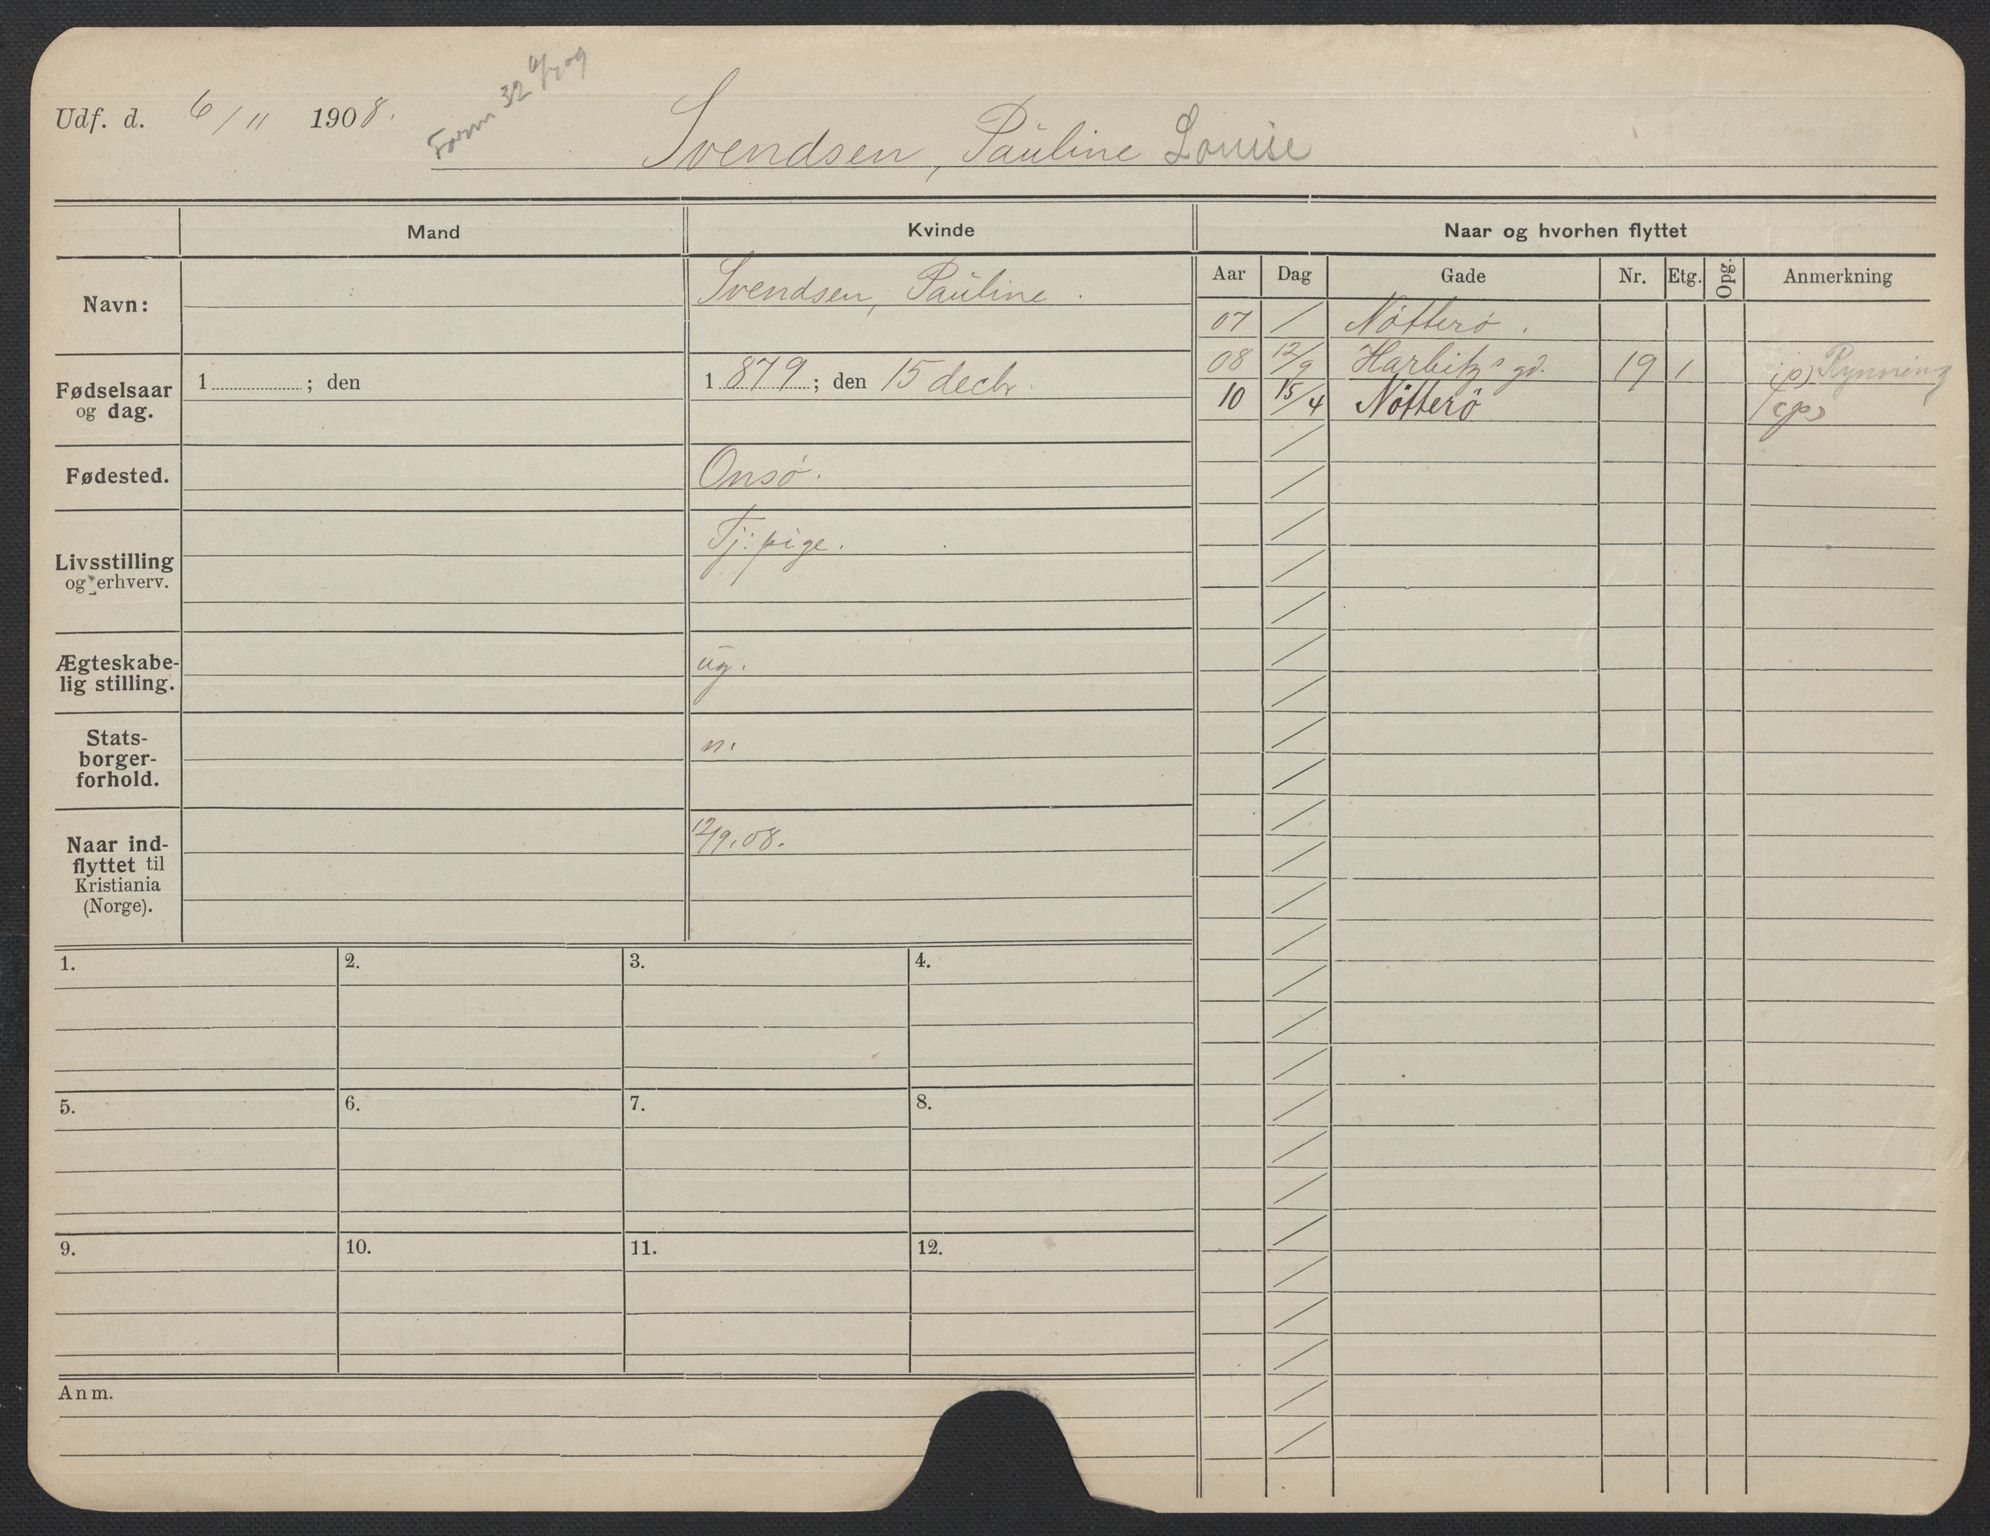 Udf. d. 6/11 1908.
Form 32
Svendsen, Pauline Louise
Mand Kvinde Naar og hvorhen flyttet
Aar Dag Gade Nr. Etg. Opg. Anmerkning
Navn: Svendsen, Pauline.
07 / Nötterö.
08 12/9 Harbitz's gd. 19 1 (p) Rynning
10 15/4 Nötterö (p)
Fødselsaar
og dag.
1 ; den
1879; den 15 decbr.
Fødested. Onsö.
Livsstilling
og erhverv.
Tj: pige.
Ægteskabe-
lig stilling.
ug.
Stats-
borger-
forhold.
n.
Naar ind-
flyttet til
Kristiania
(Norge).
12/9.08.
1. 2. 3. 4.
5. 6. 7. 8.
9. 10. 11. 12.
Anm.